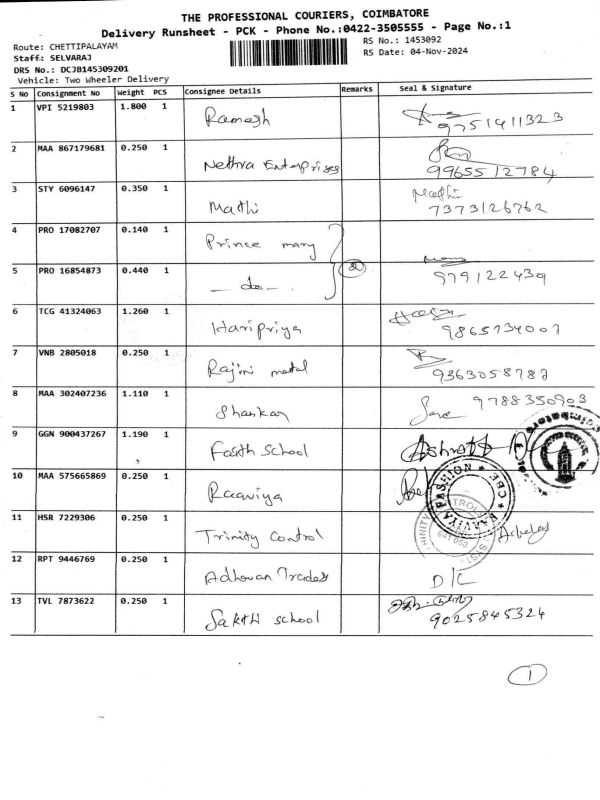 THE PROFESSIONAL COURIERS, COIMBATORE
Delivery Runsheet - PCK - Phone No.:0422-3505555 - Page No.:1
Route: CHETTIPALAYAM
RS No.: 1453092
Staff: SELVARAJ
RS Date: 04-Nov-2024
DRS No.: DCJB145309201
Vehicle: Two Wheeler Delivery
S No Consignment No Weight PCS Consignee Details Remarks Seal & Signature
1 VPI 5219803 1.800 1 Ramesh 9751411323
2 MAA 867179681 0.250 1 Nethra Enterprises 9965512784
3 STY 6096147 0.350 1 Mathi Mathi 7373126762
4 PRO 17082707 0.140 1 Prince mary
5 PRO 16854873 0.440 1 — do — 2 979122439
6 TCG 41324063 1.260 1 Haripriya 9865734007
7 VNB 2805018 0.250 1 Rajini metal 9363058787
8 MAA 302407236 1.110 1 Shankar 9788350903
9 GGN 900437267 1.190 1 School
10 MAA 575665869 0.250 1 Raaviya FASHION CBE
11 HSR 7229306 0.250 1 Trinity Control
12 RPT 9446769 0.250 1 Adhavan Trades D/C
13 TVL 7873622 0.250 1 Sakthi school 9025845324
1